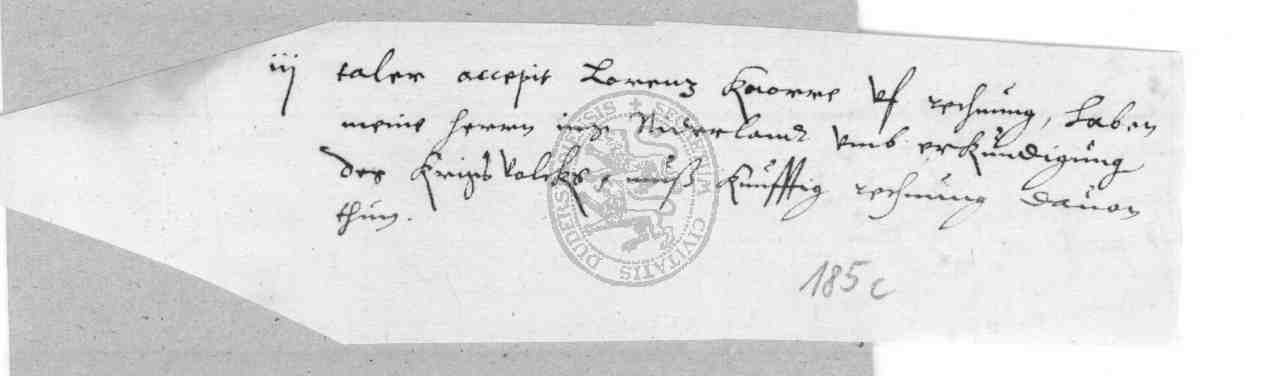 iij taler accepit Lorenz Knorre uf rechnung, haben
meine herrn inß Niderlandt umb erkundigung
der Krigs volcks, muß kunfftig rechnung dauon
thun.
SIGILLUM CIVITATIS DUDERSTADENSIS
185 c